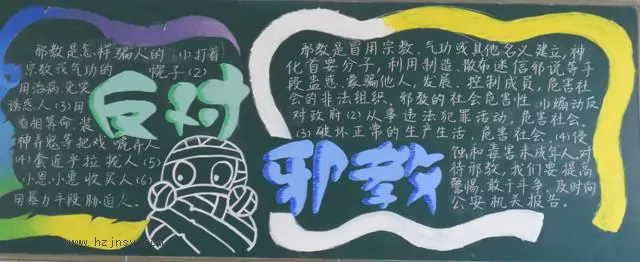 邪教是怎样骗人的 (1)打着
宗教或气功的 幌子(2)
用治病免灾
诱惑人(3)用
看相算命、装
神弄鬼等把戏 唬弄人
(4)套近乎拉拢人(5)
小恩小惠收买人(6)
用暴力手段胁迫人。
反对
邪教
邪教是冒用宗教、气功或其他名义建立,神
化首要分子,利用制造、散布迷信邪说等手
段蛊惑、蒙骗他人,发展、控制成员,危害社
会的非法组织。邪教的社会危害性:(1)煽动反
对政府(2)从事违法犯罪活动,危害社会。
(3)破坏正常的生产生活,危害社会。(4)侵
蚀和毒害未成年人。对
待邪教,我们要提高
警惕,敢于斗争,及时向
公安机关报告。
www.hzjnsy.com